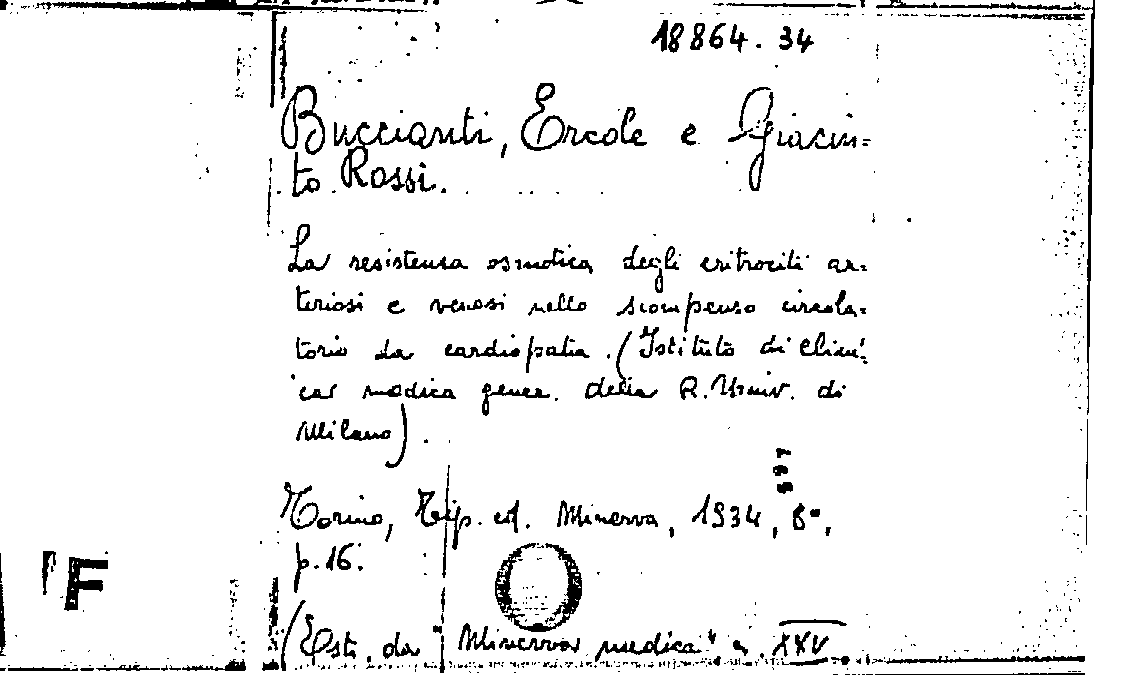 18864.34
Buccianti, Ercole e Giacin=
to Rossi.
La resistenza osmotica degli eritrociti ar=
teriosi e venosi nello scompenso circola=
torio da cardiopatia. (Istituto di Clini=
ca medica gener. della R. Univ. di
Milano).
597
Torino, Tip. ed. Minerva, 1934, 8°,
p. 16.
F
(Estr. da "Minerva medica", a. XXV